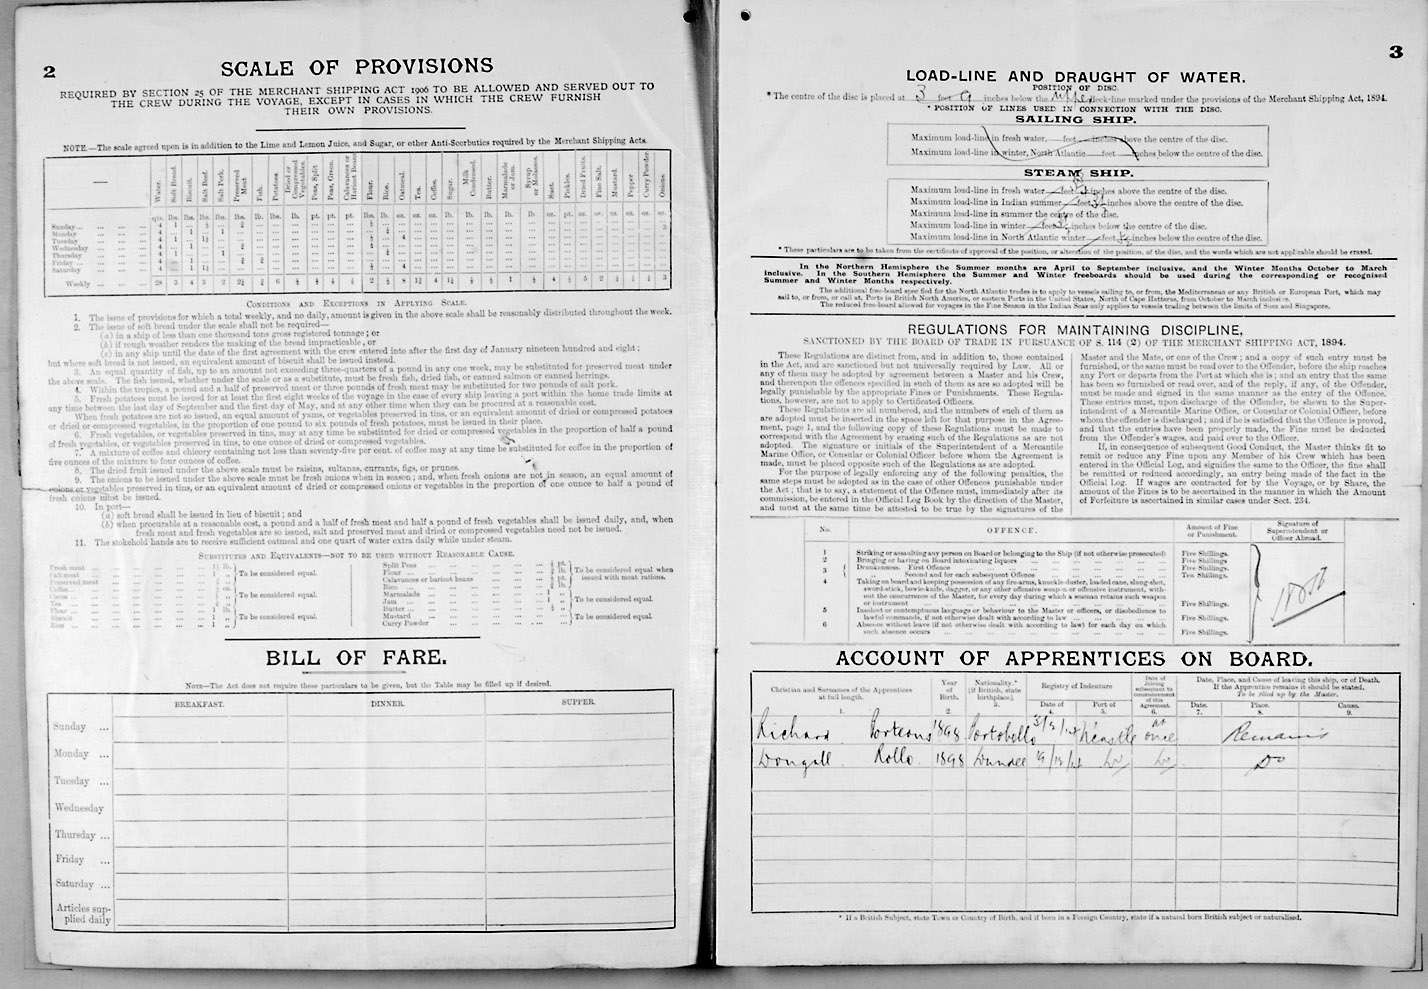 2
SCALE OF PROVISIONS
REQUIRED BY SECTION 25 OF THE MERCHANT SHIPPING ACT 1906 TO BE ALLOWED AND SERVED OUT TO
THE CREW DURING THE VOYAGE, EXCEPT IN CASES IN WHICH THE CREW FURNISH
THEIR OWN PROVISIONS.
NOTE.—The scale agreed upon is in addition to the Lime and Lemon Juice, and Sugar, or other Anti-Scorbutics required by the Merchant Shipping Acts.
— Water. Soft Bread. Biscuit. Salt Beef. Salt Pork. Preserved Meat Fish. Potatoes. Dried or Compressed Vegetables Peas, Split Peas, Green. Calavances or Haricot Beans Flour. Rice. Oatmeal. Tea. Coffee. Sugar. Milk Condensed. Butter. Marmalade or Jam. Syrup or Molasses. Suet. Pickles. Dried Fruits. Fine Salt. Mustard. Pepper Curry Powder. Onions.
qts. lbs. lbs. lbs. lbs. lbs. lb. lbs. lb. pt. pt. pt. lbs. lb. oz. oz. oz. lb. lb. lb. lb. lb. oz. pt. oz. oz. oz. oz. oz. oz.
Sunday
Monday
Tuesday
Wednesday
Thursday
Friday
Saturday
Weekly
CONDITIONS AND EXCEPTIONS IN APPLYING SCALE.
1. The issue of provisions for which a total weekly, and no daily, amount is given in the above scale shall be reasonably distributed throughout the week.
2. The issue of soft bread under the scale shall not be required—
(a) in a ship of less than one thousand tons gross registered tonnage; or
(b) if rough weather renders the making of the bread impracticable, or
(c) in any ship until the date of the first agreement with the crew entered into after the first day of January nineteen hundred and eight;
but where soft bread is not issued, an equivalent amount of biscuit shall be issued instead.
3. An equal quantity of fish, up to an amount not exceeding three-quarters of a pound in any one week, may be substituted for preserved meat under
the above scale. The fish issued, whether under the scale or as a substitute, must be fresh fish, dried fish, or canned salmon or canned herrings.
4. Within the tropics, a pound and a half of preserved meat or three pounds of fresh meat may be substituted for two pounds of salt pork.
5. Fresh potatoes must be issued for at least the first eight weeks of the voyage in the case of every ship leaving a port within the home trade limits at
any time between the last day of September and the first day of May, and at any other time when they can be procured at a reasonable cost.
When fresh potatoes are not so issued, an equal amount of yams, or vegetables preserved in tins, or an equivalent amount of dried or compressed potatoes
or dried or compressed vegetables, in the proportion of one pound to six pounds of fresh potatoes, must be issued in their place.
6. Fresh vegetables, or vegetables preserved in tins, may at any time be substituted for dried or compressed vegetables in the proportion of half a pound
of fresh vegetables, or vegetables preserved in tins, to one ounce of dried or compressed vegetables.
7. A mixture of coffee and chicory containing not less than seventy-five per cent. of coffee may at any time be substituted for coffee in the proportion of
five ounces of the mixture to four ounces of coffee.
8. The dried fruit issued under the above scale must be raisins, sultanas, currants, figs, or prunes.
9. The onions to be issued under the above scale must be fresh onions when in season; and, when fresh onions are not in season, an equal amount of
onions or vegetables preserved in tins, or an equivalent amount of dried or compressed onions or vegetables in the proportion of one ounce to half a pound of
fresh onions must be issued.
10. In port—
(a) soft bread shall be issued in lieu of biscuit; and
(b) when procurable at a reasonable cost, a pound and a half of fresh meat and half a pound of fresh vegetables shall be issued daily, and, when
fresh meat and fresh vegetables are so issued, salt and preserved meat and dried or compressed vegetables need not be issued.
11. The stokehold hands are to receive sufficient oatmeal and one quart of water extra daily while under steam.
SUBSTITUTES AND EQUIVALENTS—NOT TO BE USED WITHOUT REASONABLE CAUSE.
Fresh meat
Salt meat
Preserved meat
To be considered equal.
Coffee
Cocoa
Tea
To be considered equal.
Flour
Biscuit
Rice
To be considered equal.
Split Peas
Flour
Calavances or haricot beans
Rice
To be considered equal when
issued with meat rations.
Marmalade
Jam
Butter
To be considered equal.
Mustard
Curry Powder
To be considered equal.
BILL OF FARE.
NOTE—The Act does not require these particulars to be given, but the Table may be filled up if desired.
BREAKFAST. DINNER. SUPPER.
Sunday ...
Monday ...
Tuesday ...
Wednesday
Thursday ...
Friday ...
Saturday ...
Articles sup-
plied daily
3
LOAD-LINE AND DRAUGHT OF WATER.
POSITION OF DISC.
* The centre of the disc is placed at 3 feet 9 inches below the upper deck-line marked under the provisions of the Merchant Shipping Act, 1894.
* POSITION OF LINES USED IN CONNECTION WITH THE DISC.
SAILING SHIP.
Maximum load-line in fresh water, feet inches above the centre of the disc.
Maximum load-line in winter, North Atlantic feet inches below the centre of the disc.
STEAM SHIP.
Maximum load-line in fresh water feet inches above the centre of the disc.
Maximum load-line in Indian summer feet inches above the centre of the disc.
Maximum load-line in summer the centre of the disc.
Maximum load-line in winter feet inches below the centre of the disc.
Maximum load-line in North Atlantic winter feet inches below the centre of the disc.
* These particulars are to be taken from the certificate of approval of the position, or alteration of the position, of the disc, and the words which are not applicable should be erased.
In the Northern Hemisphere the Summer months are April to September inclusive, and the Winter Months October to March
inclusive. In the Southern Hemisphere the Summer and Winter freeboards should be used during the corresponding or recognised
Summer and Winter Months respectively.
The additional free-board specified for the North Atlantic trades is to apply to vessels sailing to, or from, the Mediterranean or any British or European Port, which may
sail to, or from, or call at, Ports in British North America, or eastern Ports in the United States, North of Cape Hatteras, from October to March inclusive.
The reduced free-board allowed for voyages in the Fine Season in the Indian Seas only applies to vessels trading between the limits of Suez and Singapore.
REGULATIONS FOR MAINTAINING DISCIPLINE,
SANCTIONED BY THE BOARD OF TRADE IN PURSUANCE OF S. 114 (2) OF THE MERCHANT SHIPPING ACT, 1894.
These Regulations are distinct from, and in addition to, those contained
in the Act, and are sanctioned but not universally required by Law. All or
any of them may be adopted by agreement between a Master and his Crew,
and thereupon the offences specified in such of them as are so adopted will be
legally punishable by the appropriate Fines or Punishments. These Regula-
tions, however, are not to apply to Certificated Officers.
These Regulations are all numbered, and the numbers of such of them as
are adopted must be inserted in the space left for that purpose in the Agree-
ment, page 1, and the following copy of these Regulations must be made to
correspond with the Agreement by erasing such of the Regulations as are not
adopted. The signature or initials of the Superintendent of a Mercantile
Marine Office, or Consular or Colonial Officer before whom the Agreement is
made, must be placed opposite such of the Regulations as are adopted.
For the purpose of legally enforcing any of the following penalties, the
same steps must be adopted as in the case of other Offences punishable under
the Act; that is to say, a statement of the Offence must, immediately after its
commission, be entered in the Official Log Book by the direction of the Master,
and must at the same time be attested to be true by the signatures of the
Master and the Mate, or one of the Crew; and a copy of such entry must be
furnished, or the same must be read over to the Offender, before the ship reaches
any Port or departs from the Port at which she is; and an entry that the same
has been so furnished or read over, and of the reply, if any, of the Offender,
must be made and signed in the same manner as the entry of the Offence.
These entries must, upon discharge of the Offender, be shewn to the Super-
intendent of a Mercantile Marine Office, or Consular or Colonial Officer, before
whom the offender is discharged; and if he is satisfied that the Offence is proved,
and that the entries have been properly made, the Fine must be deducted
from the Offender's wages, and paid over to the Officer.
If, in consequence of subsequent Good Conduct, the Master thinks fit to
remit or reduce any Fine upon any Member of his Crew which has been
entered in the Official Log, and signifies the same to the Officer, the fine shall
be remitted or reduced accordingly, an entry being made of the fact in the
Official Log. If wages are contracted for by the Voyage, or by Share, the
amount of the Fines is to be ascertained in the manner in which the Amount
of Forfeiture is ascertained in similar cases under Sect. 234.
No. OFFENCE. Amount of Fine or Punishment. Signature of Superintendent or Officer Abroad.
1 Striking or assaulting any person on Board or belonging to the Ship (if not otherwise prosecuted) Five Shillings.
2 Bringing or having on Board intoxicating liquors Five Shillings.
3 Drunkenness. First Offence Five Shillings.
Second and for each subsequent Offence Ten Shillings.
4 Taking on board and keeping possession of any fire-arms, knuckle-duster, loaded cane, slung-shot,
sword-stick, bowie-knife, dagger, or any other offensive weapon or offensive instrument, with-
out the concurrence of the Master, for every day during which a seaman retains such weapon
or instrument Five Shillings.
5 Insolent or contemptuous language or behaviour to the Master or officers, or disobedience to
lawful commands, if not otherwise dealt with according to law Five Shillings.
6 Absence without leave (if not otherwise dealt with according to law) for each day on which
such absence occurs Five Shillings.
ACCOUNT OF APPRENTICES ON BOARD.
Christian and Surnames of the Apprentices at full length. 1. Year of Birth. 2. Nationality.* [if British, state birthplace]. 3. Registry of Indenture Date of 4. Port of 5. Date of Joining subsequent to commencement of this Agreement. 6. Date, Place, and Cause of leaving this ship, or of Death. If the Apprentice remains it should be stated. To be filled up by the Master. Date. 7. Place. 8. Cause. 9.
Richard Porteous 1898 Portobello N'castle at once Remains
Dougall Rollo 1898 Dundee Do
* If a British Subject, state Town or Country of Birth, and if born in a Foreign Country, state if a natural born British subject or naturalised.